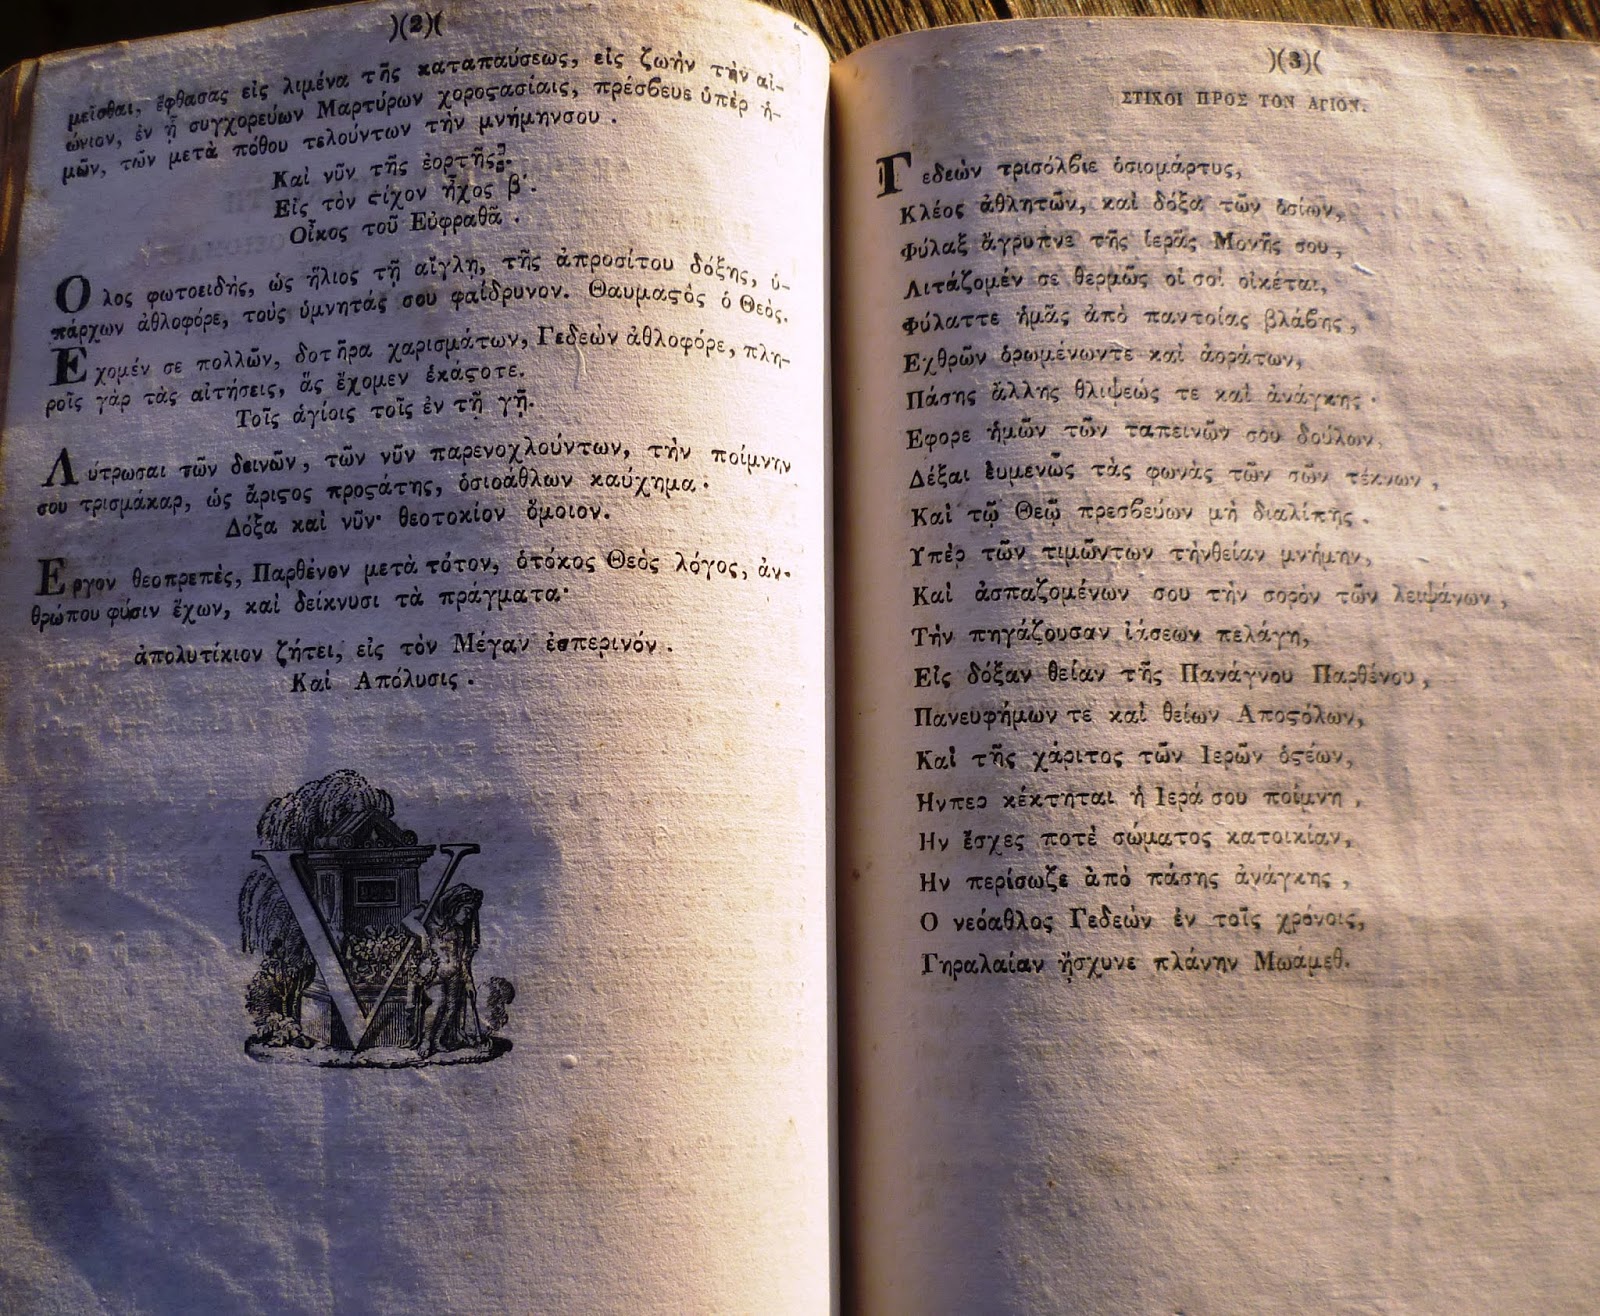 )(2)(
μεῖσθαι, ἔφθασας εἰς λιμένα τῆς καταπαύσεως, εἰς ζωὴν τὴν αἰ-
ώνιον, ἐν ᾗ συγχορεύων Μαρτύρων χοροϛασίαις, πρέσβευε ὑπὲρ ἡ-
μῶν, τῶν μετὰ πόθου τελούντων τὴν μνήμηνσου.
Καὶ νῦν τῆς ἑορτῆς.
Εἰς τὸν ϛίχον ἦχος β΄.
Οἶκος τοῦ Εὐφραθᾶ.
Ολος φωτοειδὴς, ὡς ἥλιος τῇ αἴγλῃ, τῆς ἀπροσίτου δόξης, ὑ-
πάρχων ἀθλοφόρε, τοὺς ὑμνητάς σου φαίδρυνον. Θαυμαϛὸς ὁ Θεὸς.
Εχομέν σε πολλῶν, δοτῆρα χαρισμάτων, Γεδεὼν ἀθλοφόρε, πλη-
ροῖς γὰρ τὰς αἰτήσεις, ἃς ἔχομεν ἑκάϛοτε.
Τοῖς ἁγίοις τοῖς ἐν τῇ γῇ.
Λύτρωσαι τῶν δεινῶν, τῶν νῦν παρενοχλούντων, τὴν ποίμνην
σου τρισμάκαρ, ὡς ἄριϛος προϛάτης, ὁσιοάθλων καύχημα·
Δόξα καὶ νῦν· θεοτοκίον ὅμοιον.
Εργον θεοπρεπὲς, Παρθένον μετὰ τότον, ὁτόκος Θεὸς λόγος, ἀν-
θρώπου φύσιν ἔχων, καὶ δείκνυσι τὰ πράγματα·
ἀπολυτίκιον ζήτει, εἰς τὸν Μέγαν ἑσπερινόν.
Καὶ Απόλυσις.
V
)(3)(
ΣΤΙΧΟΙ ΠΡΟΣ ΤΟΝ ΑΓΙΟΝ.
Γεδεὼν τρισόλβιε ὁσιομάρτυς,
Κλέος ἀθλητῶν, καὶ δόξα τῶν ὁσίων,
Φύλαξ ἄγρυπνε τῆς ἱερᾶς Μονῆς σου,
Λιτάζομέν σε θερμῶς οἱ σοὶ οἰκέται,
Φύλαττε ἡμᾶς ἀπὸ παντοίας βλάβης,
Εχθρῶν ὁρωμένωντε καὶ ἀοράτων,
Πάσης ἄλλης θλίψεώς τε καὶ ἀνάγκης·
Εφορε ἡμῶν τῶν ταπεινῶν σοῦ δούλων,
Δέξαι ἐυμενῶς τὰς φωνὰς τῶν σῶν τέκνων,
Καὶ τῷ Θεῷ πρεσβεύων μὴ διαλίπῃς.
Υπὲρ τῶν τιμῶντων τὴνθείαν μνήμην,
Καὶ ἀσπαζομένων σου τὴν σορὸν τῶν λειψάνων,
Τὴν πηγάζουσαν ἰάσεων πελάγη,
Εἰς δόξαν θείαν τῆς Πανάγνου Παρθένου,
Πανευφήμων τε καὶ θείων Αποϛόλων,
Καὶ τῆς χάριτος τῶν Ιερῶν ὀϛέων,
Ηνπερ κέκτηται ἡ Ιερά σου ποίμνη,
Ην ἔσχες ποτὲ σώματος κατοικίαν,
Ην περίσωζε ἀπὸ πάσης ἀνάγκης,
Ο νεόαθλος Γεδεὼν ἐν τοῖς χρόνοις,
Γηραλαίαν ᾔσχυνε πλάνην Μωάμεθ.